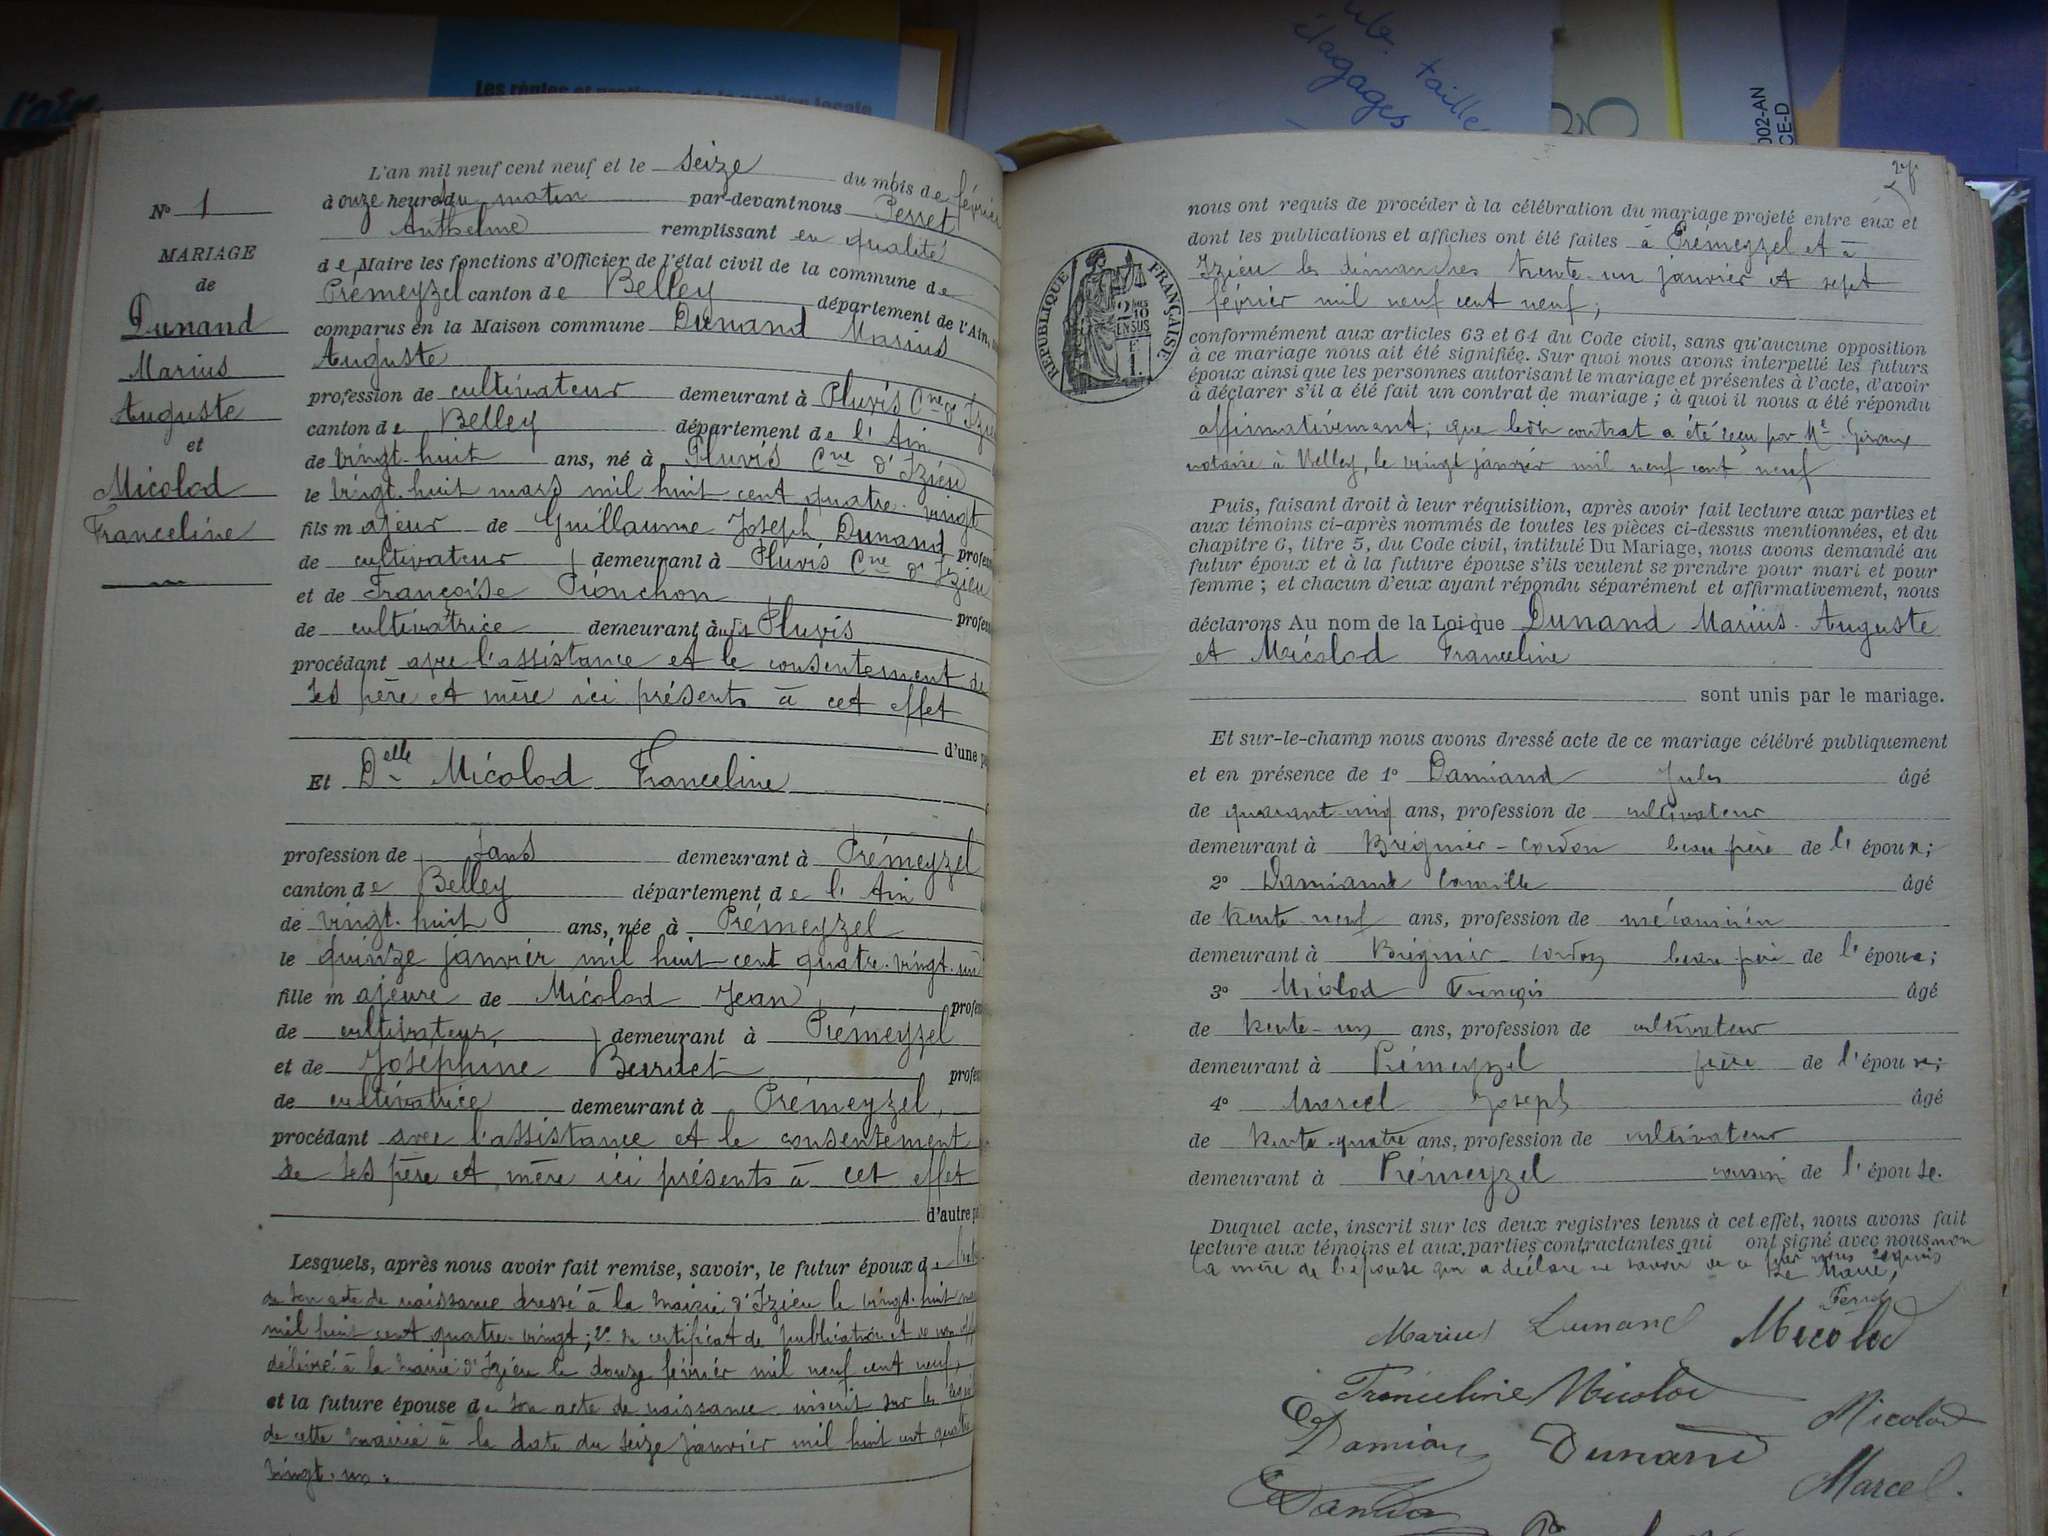 l'ain
Les règles et pratiques de la gestion locale
taille
élagages
002-AN
CE-D
L'an mil neuf cent neuf et le seize du mois de février
à onze heures du matin par-devant nous Perret
Anthelme remplissant en qualité
de Maire les fonctions d'Officier de l'état civil de la commune de
Prémeyzel canton de Belley département de l'Ain,
comparus en la Maison commune Dunand Marius
Auguste
profession de cultivateur demeurant à Pluvis Cne d'Izieu
canton de Belley département de l'Ain
de vingt-huit ans, né à Pluvis Cne d'Izieu
le vingt-huit mars mil huit cent quatre-vingt
fils majeur de Guillaume Joseph Dunand profes
de cultivateur demeurant à Pluvis Cne d'Izieu
et de Françoise Pionchon profes
de cultivatrice demeurant à Pluvis
procédant avec l'assistance et le consentement de
ses père et mère ici présents à cet effet
d'une p
Et Delle Micolod Franceline
profession de sans demeurant à Prémeyzel
canton de Belley département de l'Ain
de vingt-huit ans, née à Prémeyzel
le quinze janvier mil huit cent quatre-vingt-un
fille majeure de Micolod Jean profes
de cultivateur demeurant à Prémeyzel
et de Joséphine profes
de cultivatrice demeurant à Prémeyzel,
procédant avec l'assistance et le consentement
de ses père et mère ici présents à cet effet
d'autre p
Lesquels, après nous avoir fait remise, savoir, le futur époux de
de son acte de naissance dressé à la mairie d'Izieu le vingt-huit mars
mil huit cent quatre-vingt; 2° du certificat de publication et de non
délivré à la mairie d'Izieu le douze février mil neuf cent neuf,
et la future épouse de son acte de naissance inscrit sur les
de cette mairie à la date du seize janvier mil huit cent quatre
vingt-un.
N° 1
MARIAGE
de
Dunand
Marius
Auguste
et
Micolod
Franceline
27
nous ont requis de procéder à la célébration du mariage projeté entre eux et
dont les publications et affiches ont été faites à Prémeyzel et à
Izieu les dimanches trente-un janvier et sept
février mil neuf cent neuf;
conformément aux articles 63 et 64 du Code civil, sans qu'aucune opposition
à ce mariage nous ait été signifiée. Sur quoi nous avons interpellé les futurs
époux ainsi que les personnes autorisant le mariage et présentes à l'acte, d'avoir
à déclarer s'il a été fait un contrat de mariage; à quoi il nous a été répondu
affirmativement; que ledit contrat a été reçu par Me
notaire à Belley, le vingt janvier mil neuf cent neuf
Puis, faisant droit à leur réquisition, après avoir fait lecture aux parties et
aux témoins ci-après nommés de toutes les pièces ci-dessus mentionnées, et du
chapitre 6, titre 5, du Code civil, intitulé Du Mariage, nous avons demandé au
futur époux et à la future épouse s'ils veulent se prendre pour mari et pour
femme; et chacun d'eux ayant répondu séparément et affirmativement, nous
déclarons Au nom de la Loi que Dunand Marius-Auguste
et Micolod Franceline
sont unis par le mariage.
Et sur-le-champ nous avons dressé acte de ce mariage célébré publiquement
et en présence de 1° Damiand Jules âgé
de quarant-cinq ans, profession de cultivateur
demeurant à Brégnier-Cordon beau frère de l'époux;
2° Damiand Camille âgé
de trente-neuf ans, profession de mécanicien
demeurant à Brégnier-Cordon beau frère de l'époux;
3° Micolod François âgé
de trente-un ans, profession de cultivateur
demeurant à Prémeyzel frère de l'épouse;
4° Marcel Joseph âgé
de trente-quatre ans, profession de cultivateur
demeurant à Prémeyzel cousin de l'épouse.
Duquel acte, inscrit sur les deux registres tenus à cet effet, nous avons fait
lecture aux témoins et aux parties contractantes qui ont signé avec nous, non
la mère de l'épouse qui a déclaré ne savoir de ce par nous requis
Le Maire,
Perret
Marius Dunand Micolod
Franceline Micolod
Micolod
Damian Dunand
Marcel.
REPUBLIQUE FRANÇAISE
2 10
EN SUS
1 F.